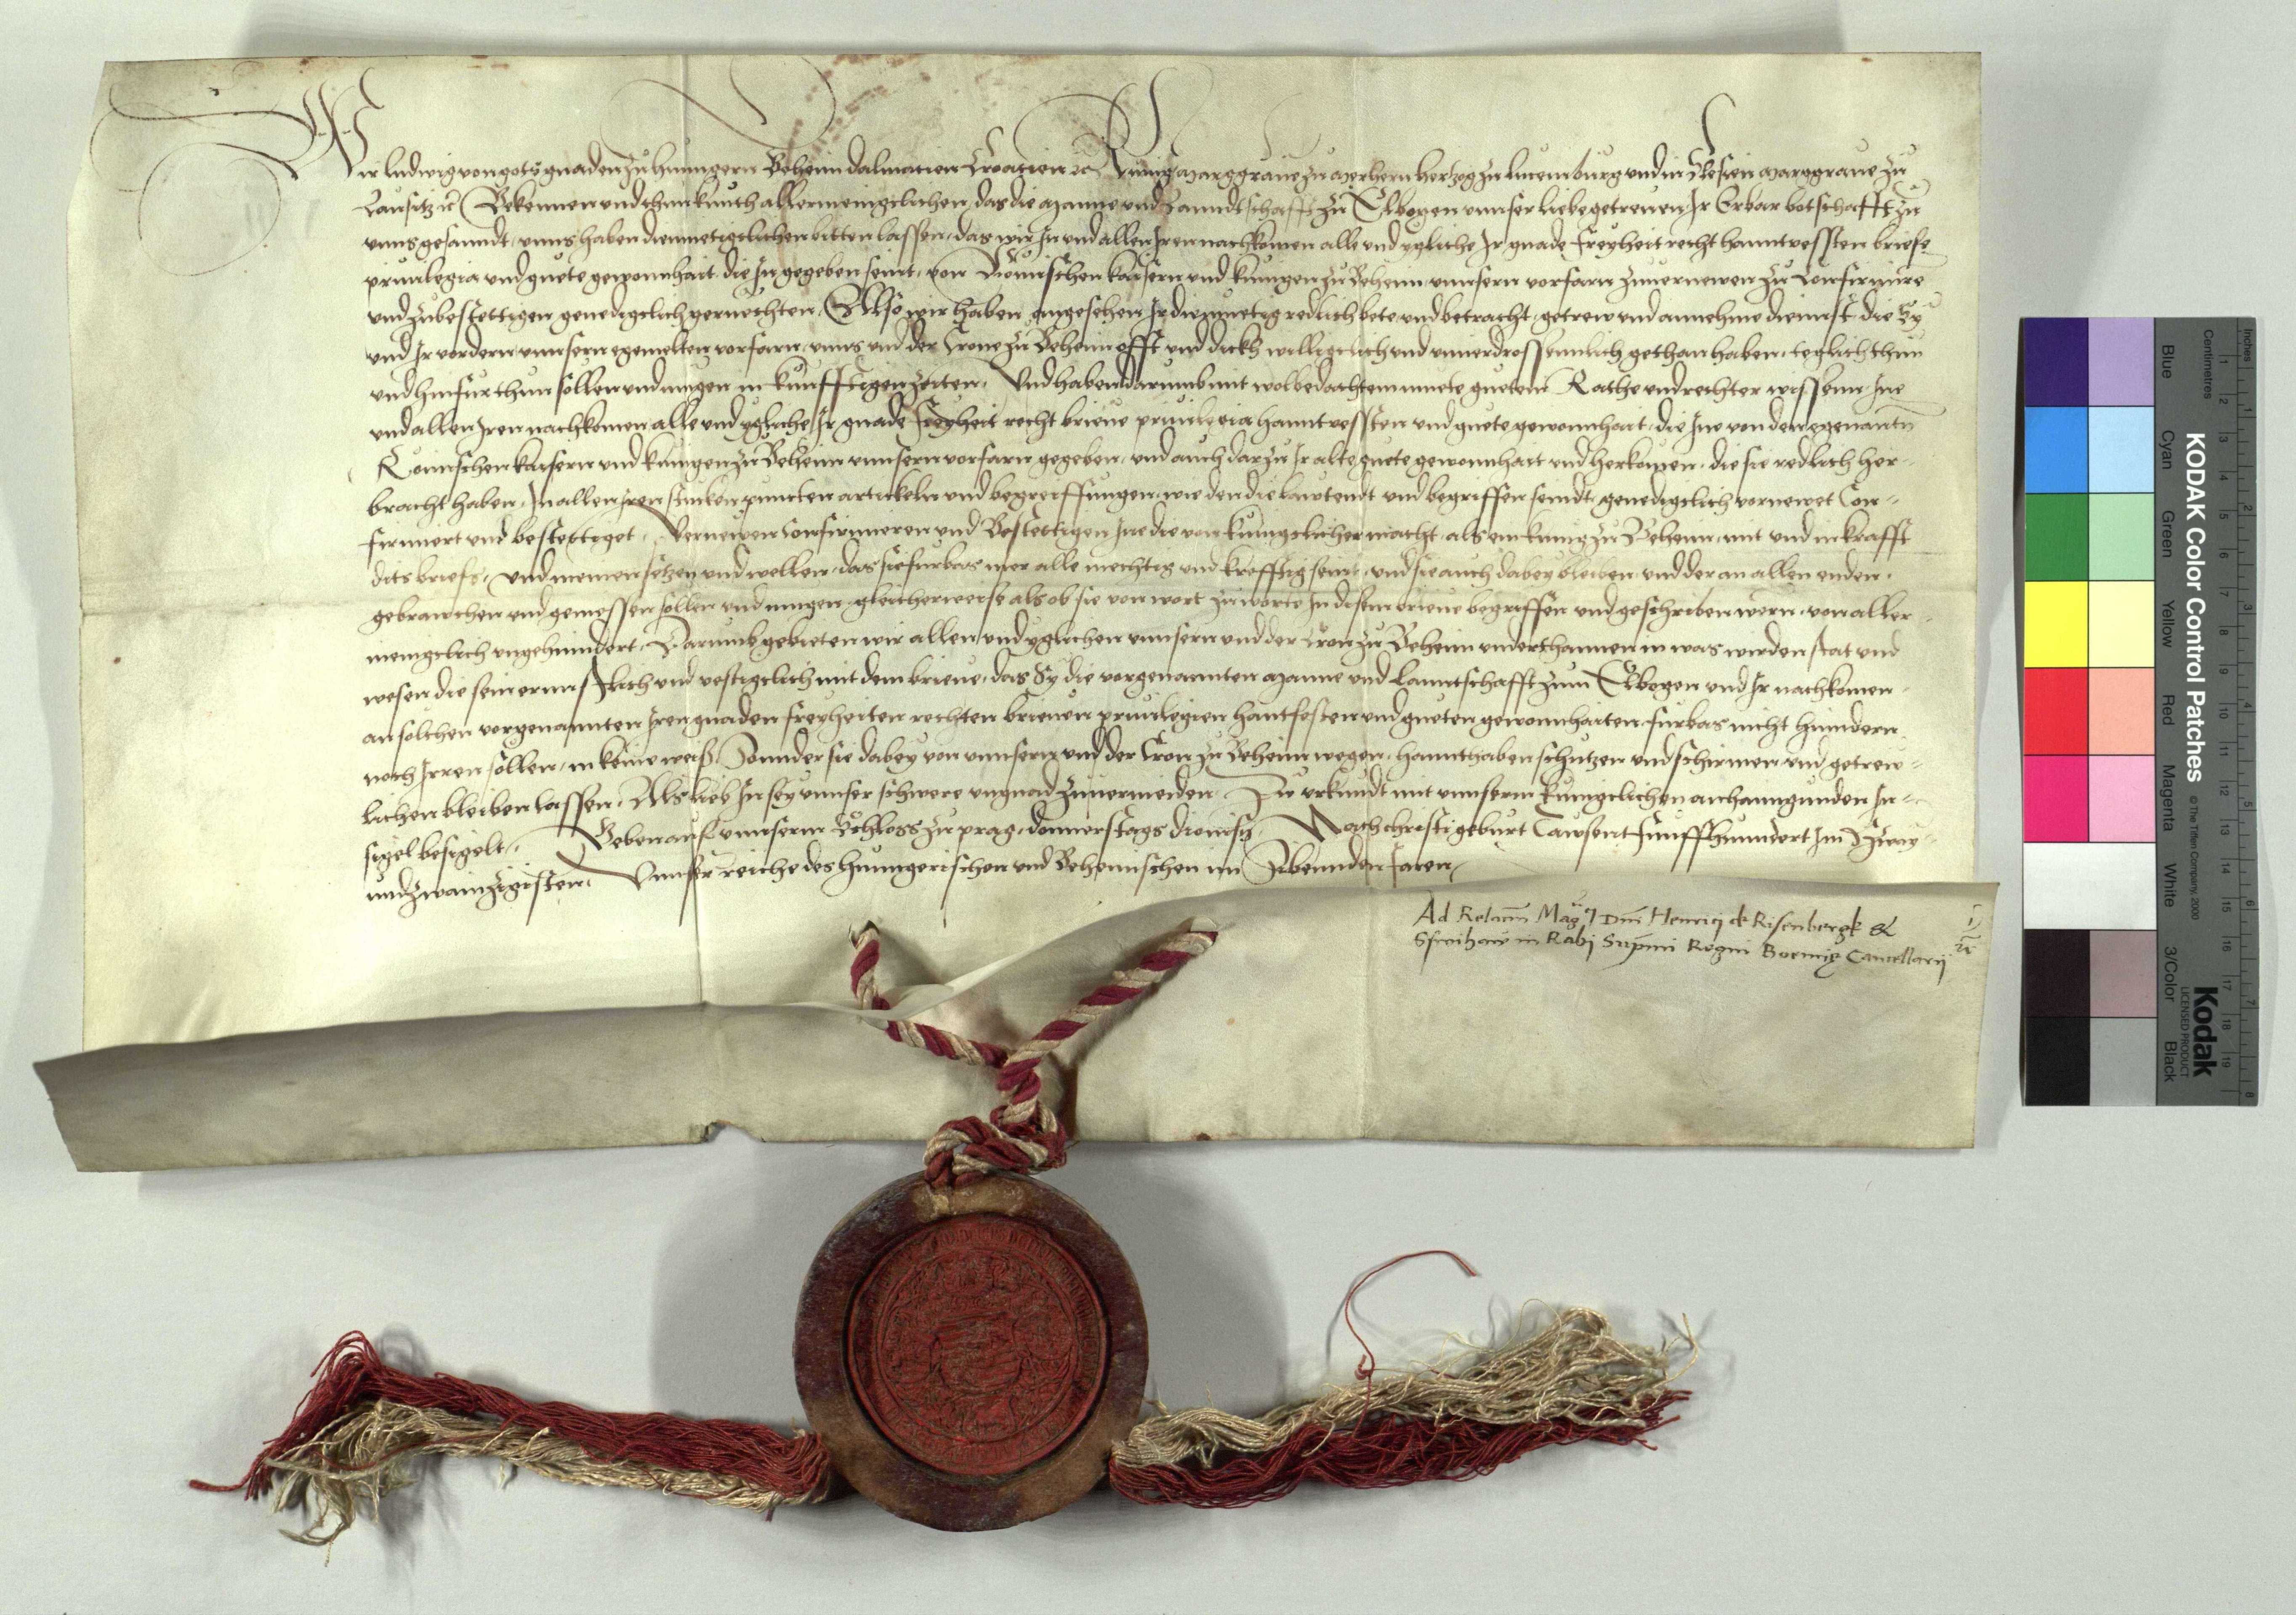 Wir ludwig von gots gnaden zu hunngern Beheim dalmatien Croatien zc Kunig marggraue zu merhern hertzog zu lucemburg und in Slesien marggraue zu
Lausitz zc Bekennen und thun kunth allermenigclichen, das die manne und Lanndtschafft zu Elbogen unnser liebe getrewen Jr Erbar botschafft zu
unns gesanndt, unns haben diemuetigclichen bitten lassen, das wir Jn und allen Jren nachkomen alle und ygliche Jr gnade freyheit recht hanntvessten briefe
priuilegia und guete gewonnhait die Jn gegeben seint, von Romischen kaisern und kunigen zu Beheim unnsern vorfarn zuuernewen zu Confirmire
und zubestettigen genedigclich geruechten, Also wir haben angesehen Jr diemuetig redlich bete und betracht, getrew und anneme diennst die Sy
und Jr vordern unnsern egemelten vorfarn, unns und der Crone zu Beheim offt und dickh willigclich und unuerdrossennlich gethan haben, teglich thun
und hinfur thun sollen und mugen in kunfftigen zeiten, Und haben darumb mit wolbedachtem muete guetem Rathe und rechter wissenn Jne
und allen Jren nachkomen alle und ygliche Jr gnade freyheit recht brieue priuilegia hanntvessten und guete gewonnhait, die Jne von den egenantn
Romischen kaisern und kunigen zu Beheim unnsern vorfarn gegeben, und auch darzu Jr alte guete gewonnhait und herkomen, die sie redlich her-
bracht haben, Jn allen Jren stucken puncten artickeln und begreiffungen, wie den die lawtendt und begriffen seindt, genedigclich vernewet Con-
firmiert und bestettiget, Vernewen Confirmieren und Bestettigen Jne die von kunigclicher macht, als ein kunig zu Beheim, mit und in krafft
dits briefs, und meinen setzen und wellen, das sie furbas mer alle mechtig und krefftig seint, und sie auch dabey bleiben, und der an allen enden,
gebrawchen und geniessen sollen und mugen gleicherweise als ob sie von wort zu worte Jn disem brieue begriffen und geschriben wern, von aller-
menigclich ungehinndert, Darumb gebieten wir allen und yglichen unnsern und der Cron zu Beheim underthannen in was wirden stat und
wesen die sein ernnstlich und vestigclich mit dem brieue, das Sy die vorgenannten manne und Lanntschafft zum Elbogen und Jr nachkomen
an solchen vorgenannten Jren gnaden freyheiten rechten brieuen priuilegien hantfesten und gueten gewonnhaiten furbas nicht hinndern
noch Jrren sollen, in keine weiß, Sonnder sie dabey von unnsern und der Cron zu Beheim wegen, hannthaben schutzen und schirmen und getrew-
lichen bleiben lassen, Als lieb Jn sey unnser schwere ungnad zuuermeiden, Zu urkundt mit unnserm kunigclichen anhanngunden Jn-
sigel besigelt, Geben auf unnserm Schloss zu prag, donnerstags dionisy, Nach christi geburt Tawsent funffhunndert Jm Zway-
undzwainzigisten, Unnser reiche des hunngerischen und Behemischen im Sibennden Jaren,
Ad Relacõm Mag^ci Dni Henrici de Risenbergk &
Sswihow in Rabj Supmi Regni Boemie Cancellarij zc